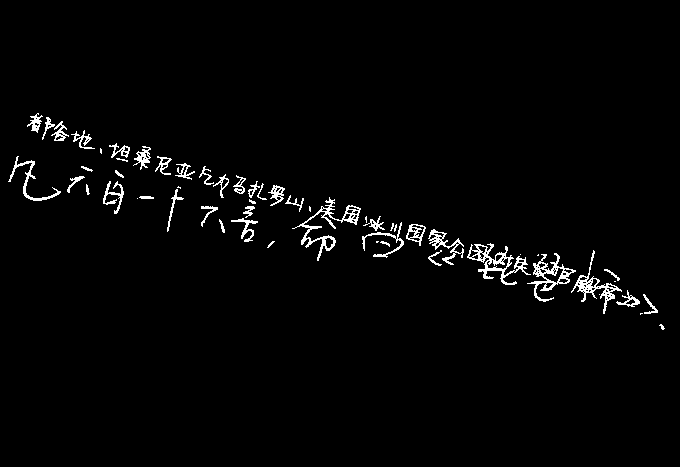 都各地、坦桑尼亚乞力马扎罗山、美国冰川国家公园
凡六百一十六言,命曰《琵琶行》.